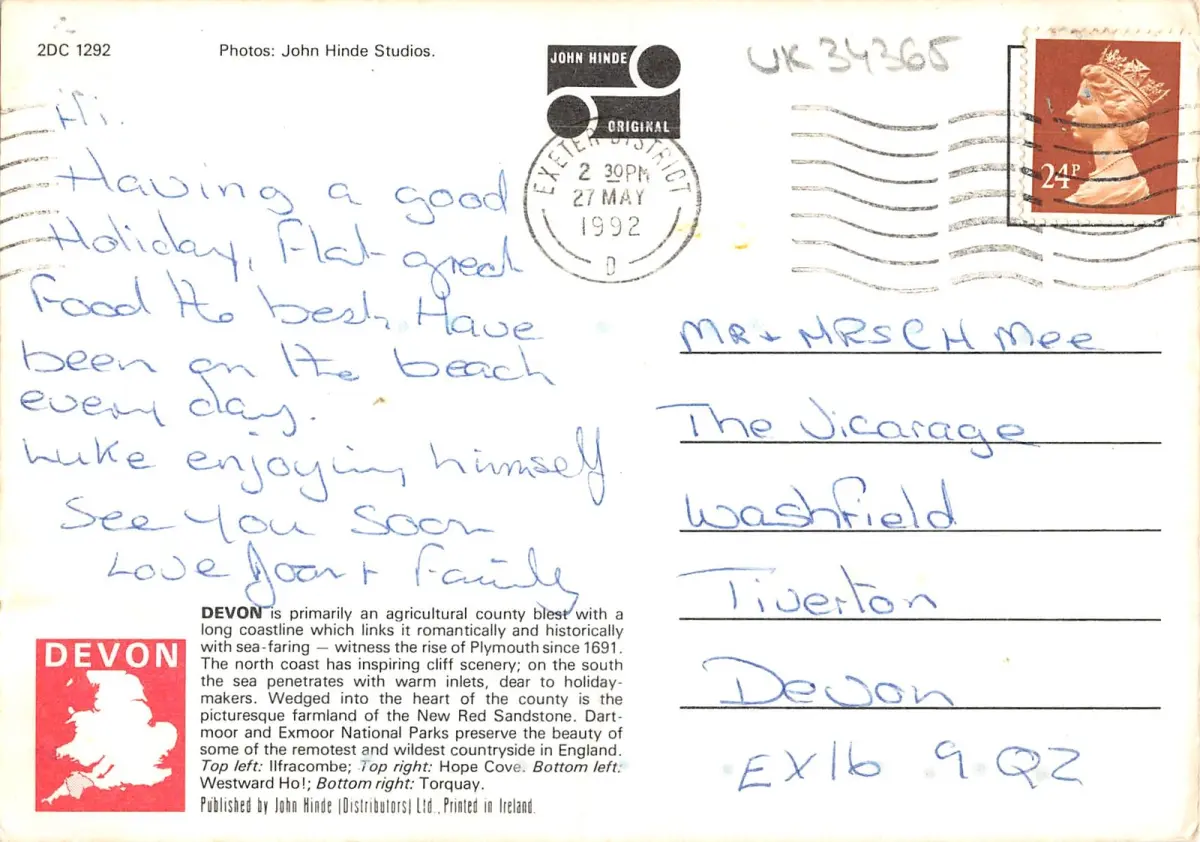 2DC 1292
Photos: John Hinde Studios.
JOHN HINDE
ORIGINAL
UK 34365
EXETER DISTRICT
2 30PM
27 MAY
1992
D
24P
Hi.
Having a good
Holiday, Flat great
Food the best, Have
been on the beach
every day.
Luke enjoying himself
See you soon
Love Joan + Family
MR + MRS C H Mee
The Vicarage
Washfield
Tiverton
Devon
EX16 9QZ
DEVON
DEVON is primarily an agricultural county blest with a
long coastline which links it romantically and historically
with sea-faring — witness the rise of Plymouth since 1691.
The north coast has inspiring cliff scenery; on the south
the sea penetrates with warm inlets, dear to holiday-
makers. Wedged into the heart of the county is the
picturesque farmland of the New Red Sandstone. Dart-
moor and Exmoor National Parks preserve the beauty of
some of the remotest and wildest countryside in England.
Top left: Ilfracombe; Top right: Hope Cove. Bottom left:
Westward Ho!; Bottom right: Torquay.
Published by John Hinde (Distributors) Ltd., Printed in Ireland.